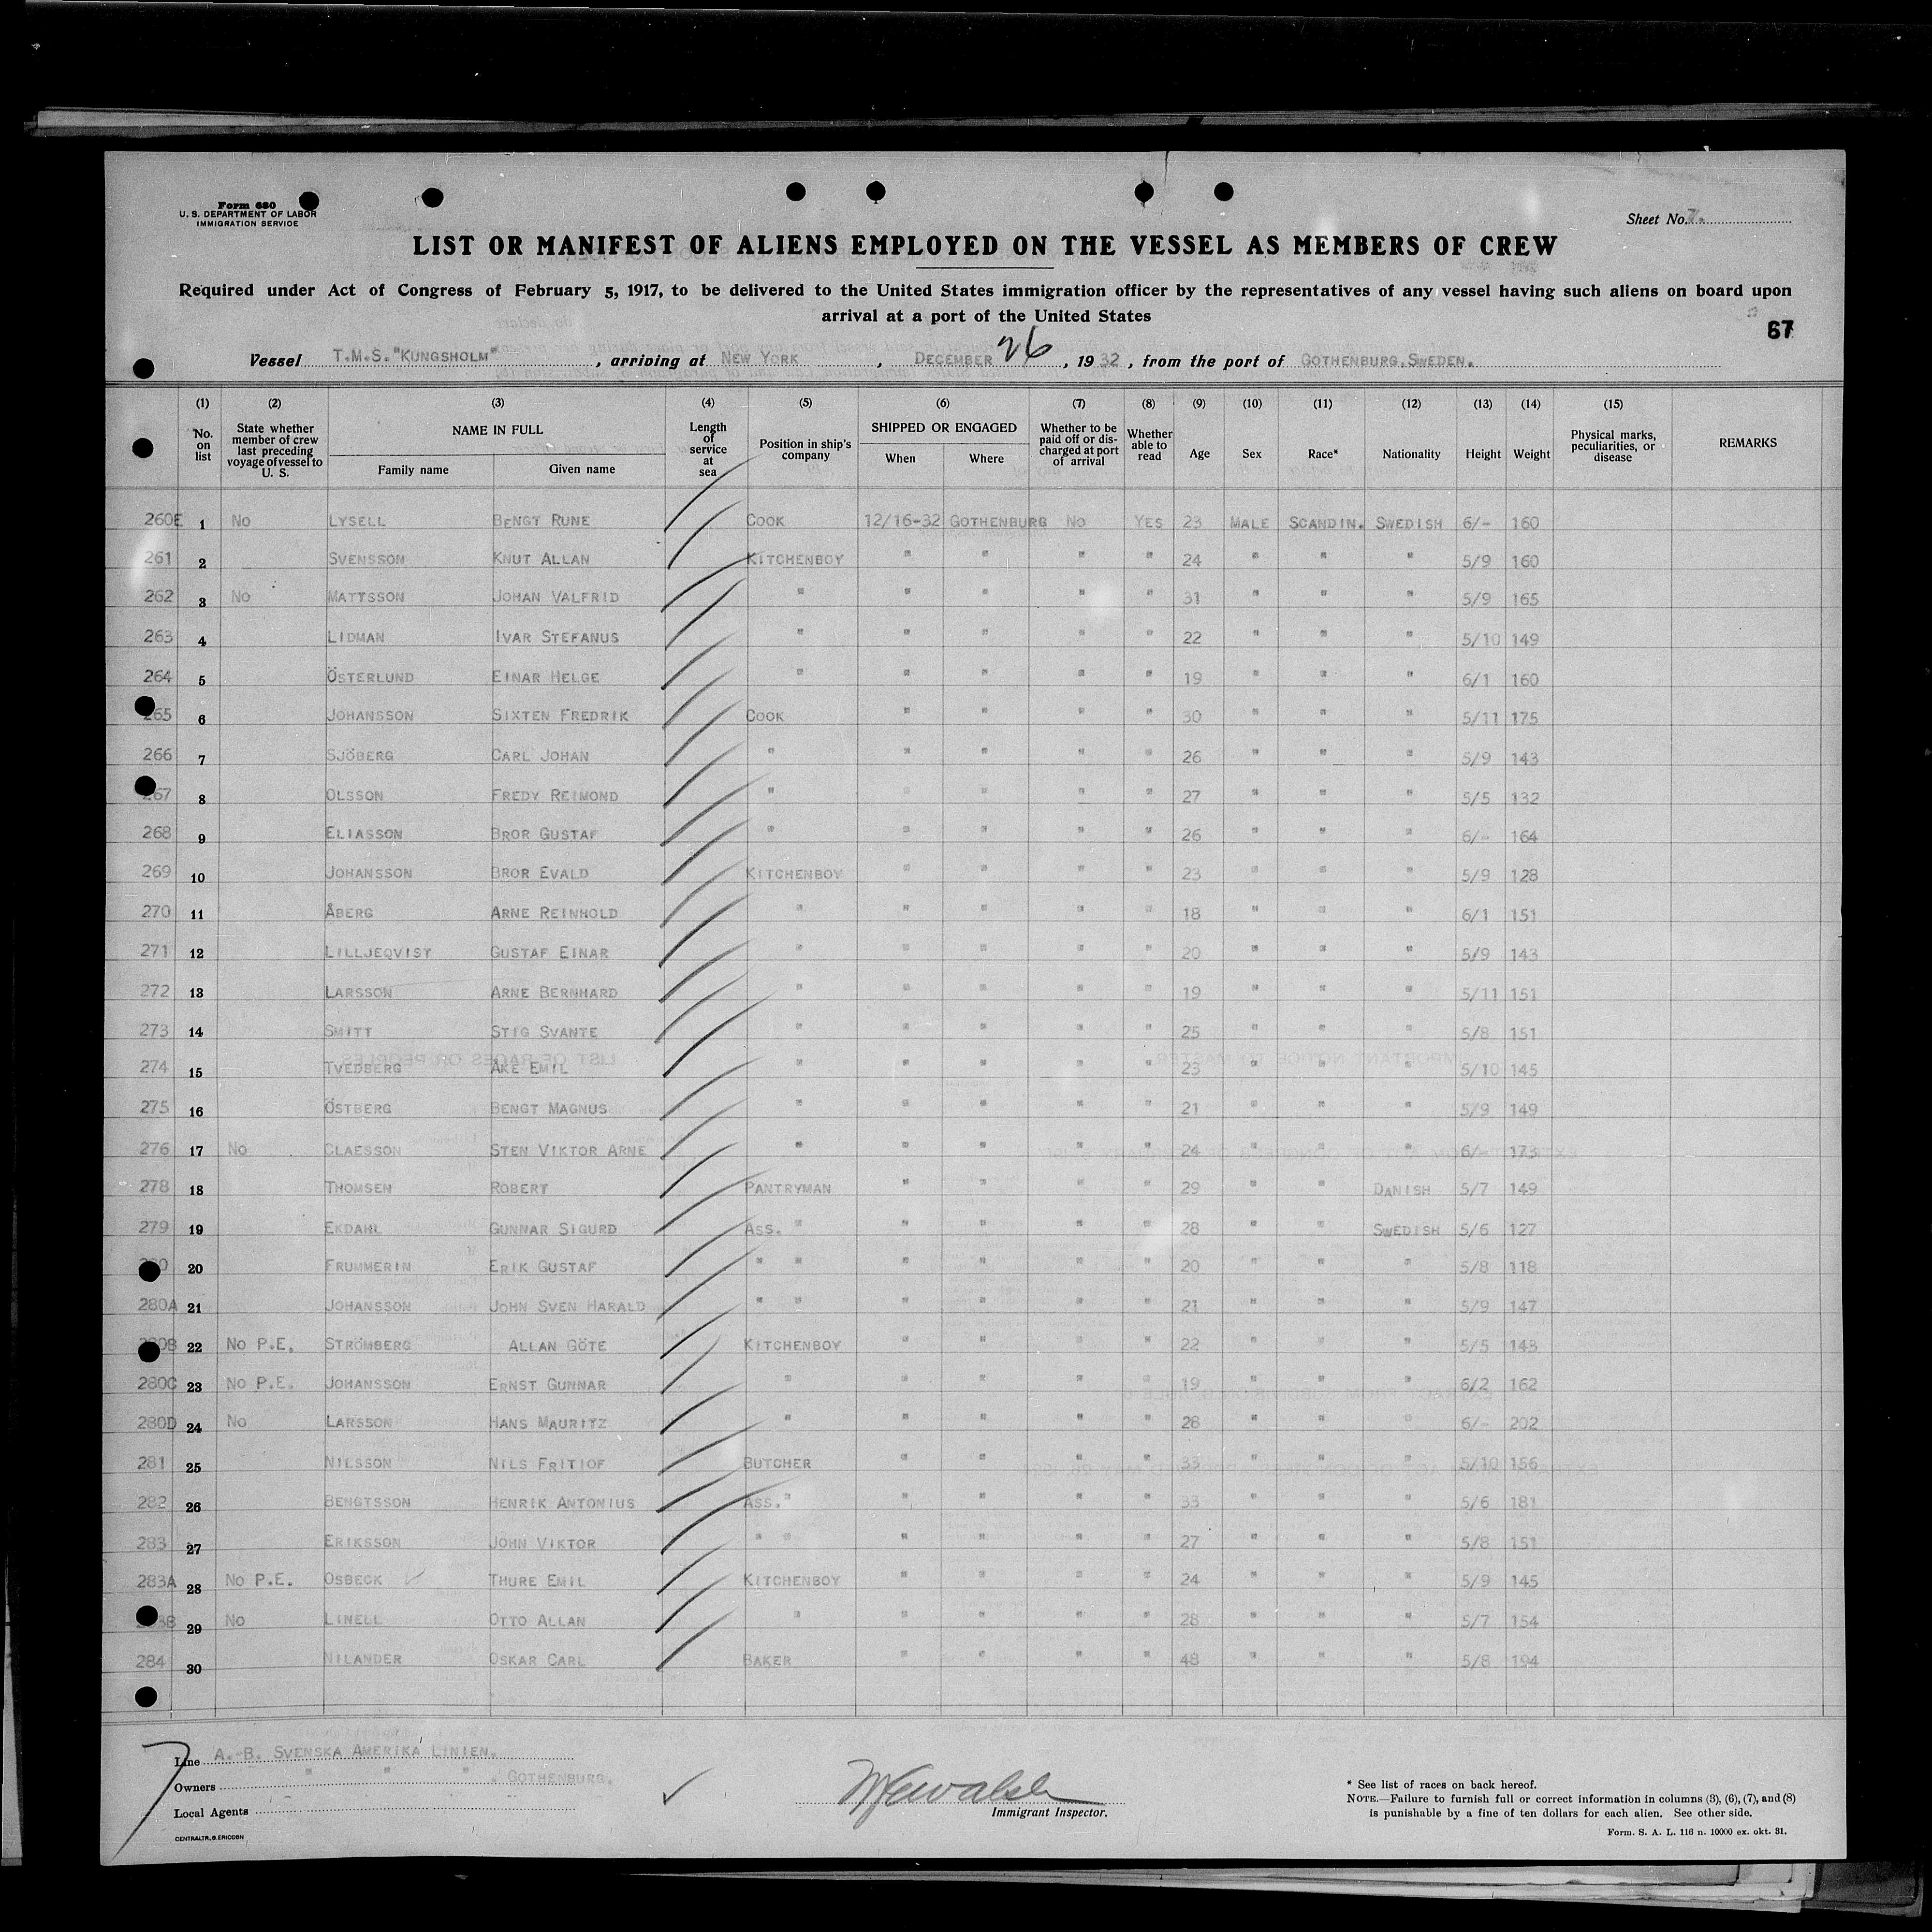 Form 680
U. S. DEPARTMENT OF LABOR
IMMIGRATION SERVICE
Sheet No. 7.
LIST OR MANIFEST OF ALIENS EMPLOYED ON THE VESSEL AS MEMBERS OF CREW
Required under Act of Congress of February 5, 1917, to be delivered to the United States immigration officer by the representatives of any vessel having such aliens on board upon
arrival at a port of the United States
67
Vessel T.M.S. "KUNGSHOLM", arriving at NEW YORK, DECEMBER 26, 1932, from the port of GOTHENBURG, SWEDEN.
(1) (2) (3) (4) (5) (6) (7) (8) (9) (10) (11) (12) (13) (14) (15)
No. on list | State whether member of crew last preceding voyage of vessel to U. S. | NAME IN FULL Family name Given name | Length of service at sea | Position in ship's company | SHIPPED OR ENGAGED When Where | Whether to be paid off or discharged at port of arrival | Whether able to read | Age | Sex | Race* | Nationality | Height | Weight | Physical marks, peculiarities, or disease | REMARKS
260E 1 No LYSELL BENGT RUNE COOK 12/16-32 GOTHENBURG No YES 23 MALE SCANDIN. SWEDISH 6/- 160
261 2 SVENSSON KNUT ALLAN KITCHENBOY " " " " 24 " " " 5/9 160
262 3 No MATTSSON JOHAN VALFRID " " " " " 31 " " " 5/9 165
263 4 LIDMAN IVAR STEFANUS " " " " " 22 " " " 5/10 149
264 5 ÖSTERLUND EINAR HELGE " " " " " 19 " " " 6/1 160
265 6 JOHANSSON SIXTEN FREDRIK COOK " " " " 30 " " " 5/11 175
266 7 SJÖBERG CARL JOHAN " " " " " 26 " " " 5/9 143
267 8 OLSSON FREDY REIMOND " " " " " 27 " " " 5/5 132
268 9 ELIASSON BROR GUSTAF " " " " " 26 " " " 6/- 164
269 10 JOHANSSON BROR EVALD KITCHENBOY " " " " 23 " " " 5/9 128
270 11 ÅBERG ARNE REINHOLD " " " " " 18 " " " 6/1 151
271 12 LILLJEQVIST GUSTAF EINAR " " " " " 20 " " " 5/9 143
272 13 LARSSON ARNE BERNHARD " " " " " 19 " " " 5/11 151
273 14 SMITT STIG SVANTE " " " " " 25 " " " 5/8 151
274 15 TVEDBERG ÅKE EMIL " " " " " 23 " " " 5/10 145
275 16 ÖSTBERG BENGT MAGNUS " " " " " 21 " " " 5/9 149
276 17 No CLAESSON STEN VIKTOR ARNE " " " " " 24 " " " 6/- 173
278 18 THOMSEN ROBERT PANTRYMAN " " " " 29 " " DANISH 5/7 149
279 19 EKDAHL GUNNAR SIGURD ASS. " " " " " 28 " " SWEDISH 5/6 127
20 FRUMMERIN ERIK GUSTAF " " " " " " 20 " " " 5/8 118
280A 21 JOHANSSON JOHN SVEN HARALD " " " " " " 21 " " " 5/9 147
280B 22 No P.E. STRÖMBERG ALLAN GÖTE KITCHENBOY " " " " 22 " " " 5/5 143
280C 23 No P.E. JOHANSSON ERNST GUNNAR " " " " " 19 " " " 6/2 162
280D 24 No LARSSON HANS MAURITZ " " " " " 28 " " " 6/- 202
281 25 NILSSON NILS FRITIOF BUTCHER " " " " 33 " " " 5/10 156
282 26 BENGTSSON HENRIK ANTONIUS ASS. " " " " " 33 " " " 5/6 181
283 27 ERIKSSON JOHN VIKTOR " " " " " " 27 " " " 5/8 151
283A 28 No P.E. OSBECK ✓ THURE EMIL KITCHENBOY " " " " 24 " " " 5/9 145
283B 29 No LINELL OTTO ALLAN " " " " " 28 " " " 5/7 154
284 30 NILANDER OSKAR CARL BAKER " " " " 48 " " " 5/8 194
Line A.-B. SVENSKA AMERIKA LINIEN.
Owners " " " . GOTHENBURG.
Local Agents
CENTRALTR. G. ERICSON
7
✓
Immigrant Inspector.
* See list of races on back hereof.
NOTE.—Failure to furnish full or correct information in columns (3), (6), (7), and (8)
is punishable by a fine of ten dollars for each alien. See other side.
Form. S. A. L. 116 n. 10000 ex. okt. 31.